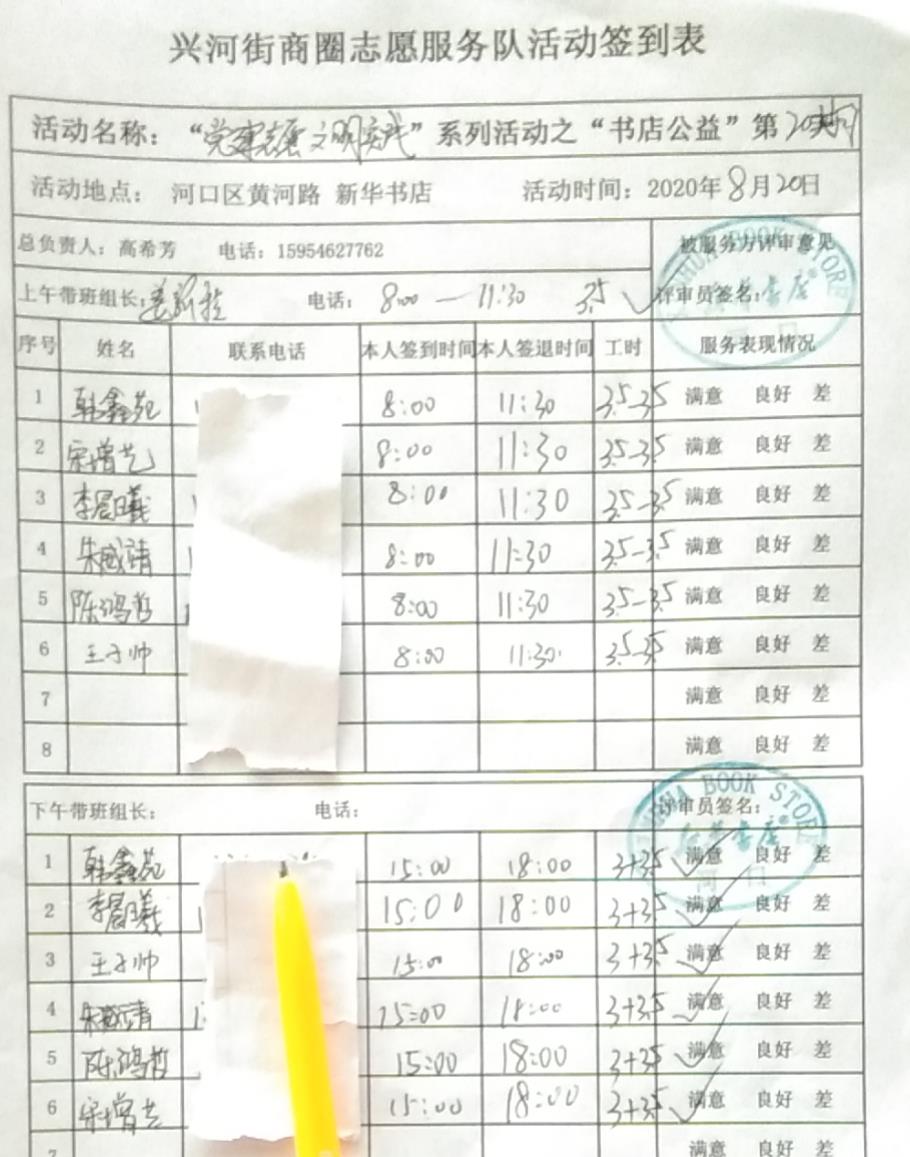 兴河街商圈志愿服务队活动签到表
活动名称：“党建 文明实践”系列活动之“书店公益”第20期
活动地点： 河口区黄河路 新华书店 活动时间：2020年8月20日
总负责人：高希芳 电话：15954627762 被服务方评审意见
上午带班组长： 电话： 8:00 — 11:30 3.5 评审员签名：
序号 姓名 联系电话 本人签到时间 本人签退时间 工时 服务表现情况
1 韩鑫苑 8:00 11:30 3.5-3.5 满意 良好 差
2 宋增艺 8:00 11:30 3.5-3.5 满意 良好 差
3 李晨曦 8:00 11:30 3.5-3.5 满意 良好 差
4 朱威靖 8:00 11:30 3.5-3.5 满意 良好 差
5 陈鸿哲 8:00 11:30 3.5-3.5 满意 良好 差
6 王子帅 8:00 11:30 3.5-3.5 满意 良好 差
7 满意 良好 差
8 满意 良好 差
XINHUA BOOK STORE
新华书店
河口
下午带班组长： 电话： 评审员签名：
1 韩鑫苑 15:00 18:00 3+3.5 满意 良好 差
2 李晨曦 15:00 18:00 3+3.5 满意 良好 差
3 王子帅 15:00 18:00 3+3.5 满意 良好 差
4 朱威靖 15:00 18:00 3+3.5 满意 良好 差
5 陈鸿哲 15:00 18:00 3+3.5 满意 良好 差
6 宋增艺 15:00 18:00 3+3.5 满意 良好 差
7 满意 良好 差
XINHUA BOOK STORE
新华书店
河口